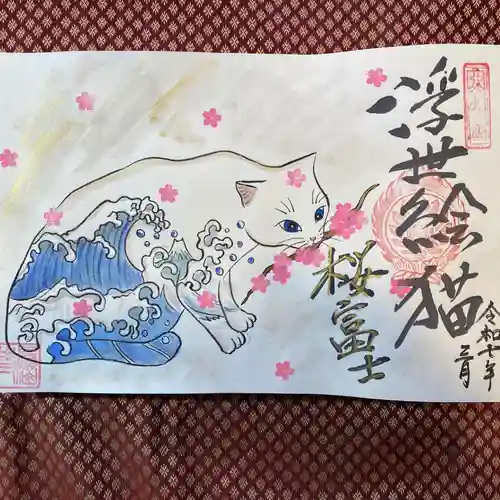 浮世絵猫
桜富士
令和七年
三月